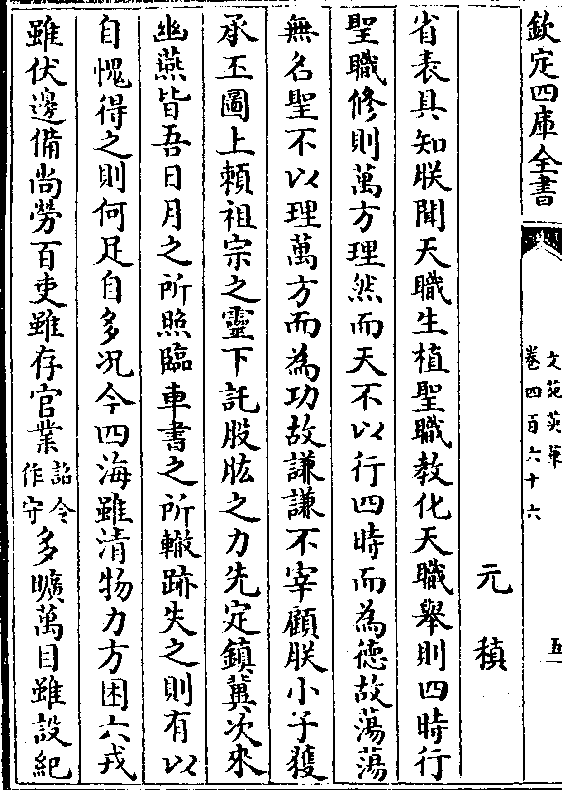 欽定四庫全書
文苑英華
卷四百六十六
五
元稹
省表具知朕聞天職生植聖職教化天職舉則四時行
聖職修則萬方理然而天不以行四時而為德故蕩蕩
無名聖不以理萬方而為功故謙謙不宰顧朕小子獲
承丕圖上賴祖宗之靈下託股肱之力先定鎮冀次來
幽燕皆吾日月之所照臨車書之所轍跡失之則有以
自愧得之則何足自多況今四海雖清物力方困六戎
雖伏邊備尚勞百吏雖存官業詔令作守多曠萬目雖設紀